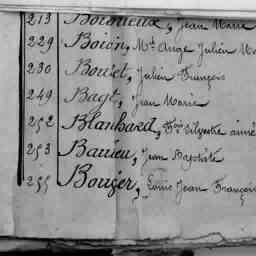 213 Bordieux, Jean Marie
229 Boiron, Mel Ange Julien
230 Bouret, Julien François
249 Bagt, Jean Marie
252 Blanhard, Fois Silvestre aimé
253 Barrieu, Jean Baptiste
255 Bouzer, Louis Jean François